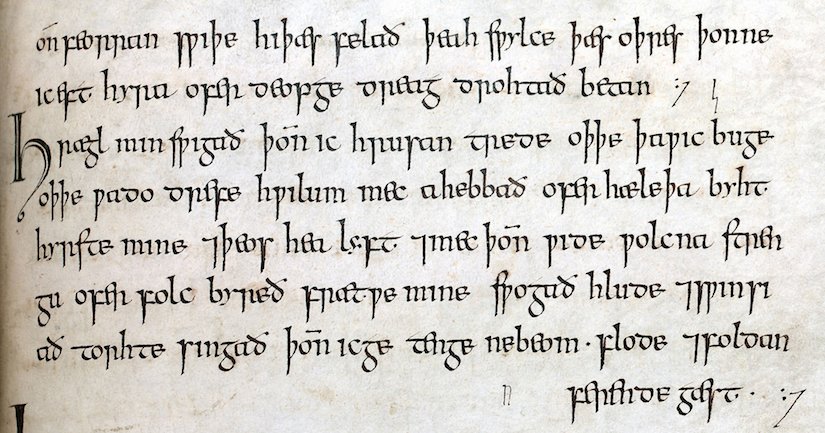 on̄ feorran sƿiþe hiþæs felað þeah sƿylce þæs oþres þonne
iceft hyra ofer deopge dreag drohtað betan :⁊
Hrægl min sƿigað þon̄ ic hrusan trede oþþe þaƿic buge
oþþe ƿado drefe hƿilum mec ahebbað ofer hæleþa byht
hyrste mine ⁊þeos hea lyft ⁊mec þon̄ ƿide ƿolcna stren
gu ofer folc byreð frætƿe mine sƿogað hlude ⁊sƿinsi
að torhte singað þon̄ icge tenge nebeom · flode ⁊foldan
ferende gæst · :⁊